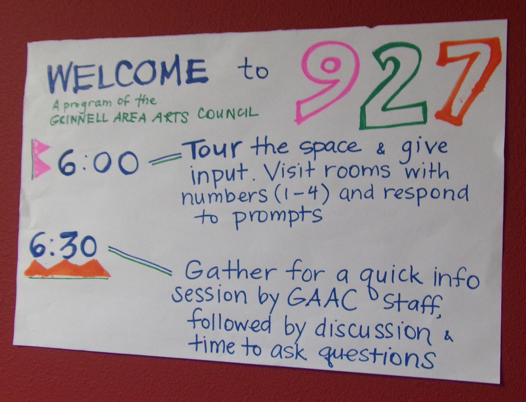 WELCOME to 927
A program of the
GRINNELL AREA ARTS COUNCIL
6:00 Tour the space & give
input. Visit rooms with
numbers (1-4) and respond
to prompts
6:30
Gather for a quick info
session by GAAC staff,
followed by discussion &
time to ask questions